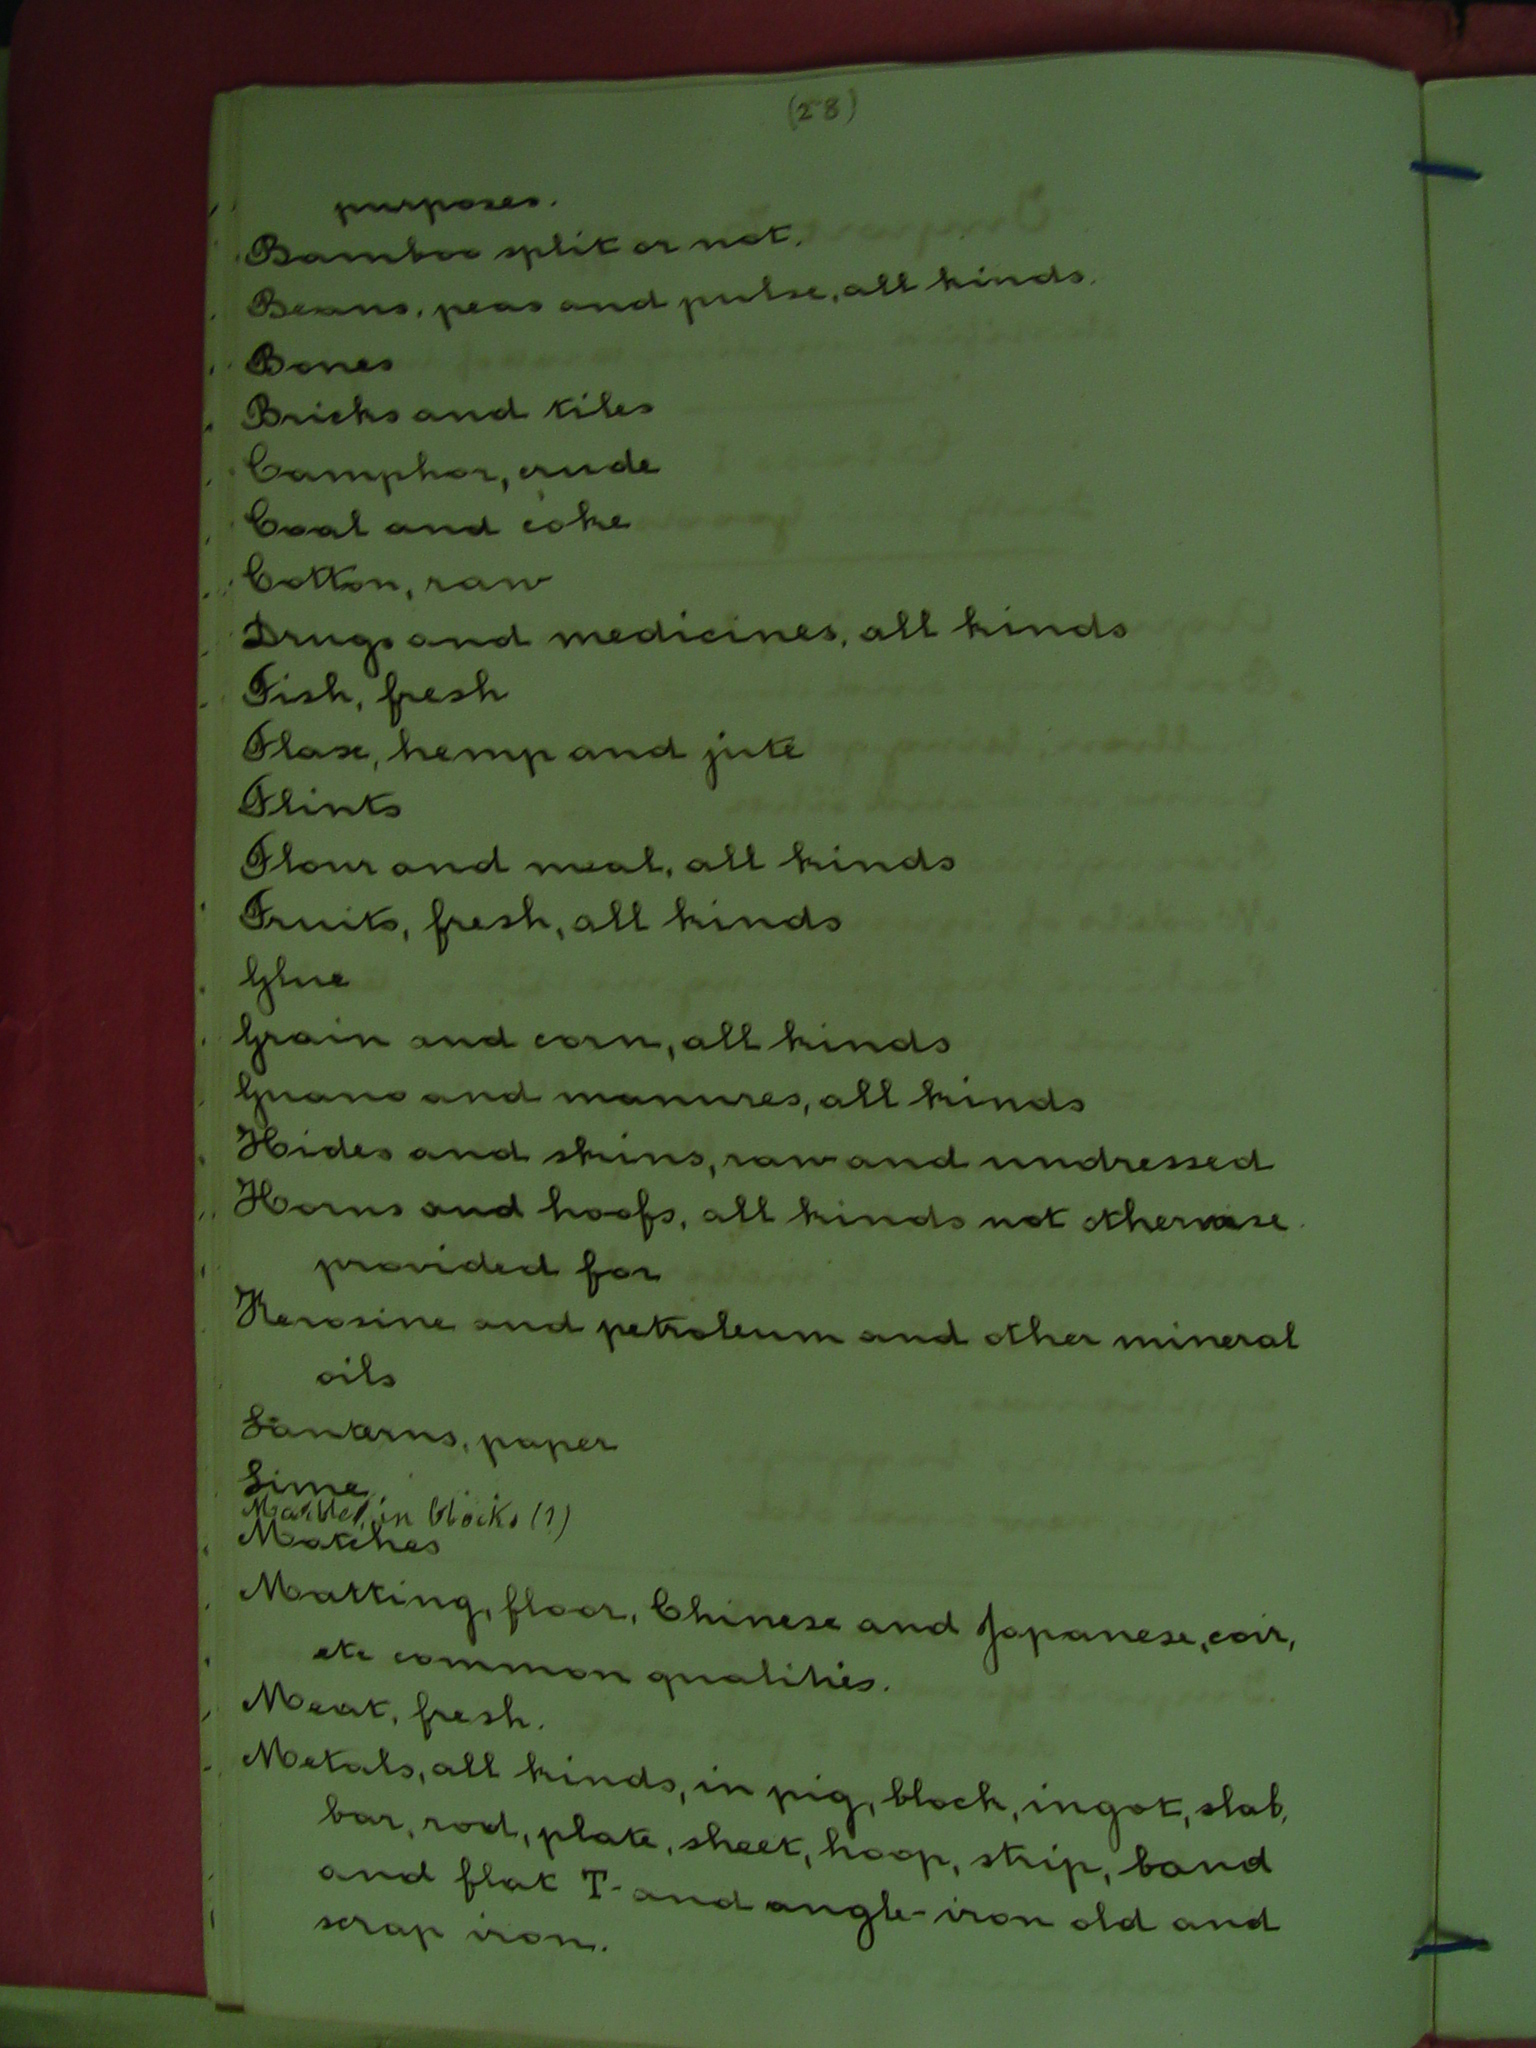 (28)
purposes.
Bamboo split or not.
Beans, peas and pulse, all kinds.
Bones
Bricks and tiles
Camphor, crude
Coal and coke
Cotton, raw
Drugs and medicines, all kinds
Fish, fresh
Flax, hemp and jute
Flints
Flour and meal, all kinds
Fruits, fresh, all kinds
Glue
Grain and corn, all kinds
Guano and manures, all kinds
Hides and skins, raw and undressed
Horns and hoofs, all kinds not otherwise
provided for
Kerosine and petroleum and other mineral
oils
Lanterns, paper
Lime
Marble, in blocks (?)
Matches
Matting, floor, Chinese and Japanese, coir,
etc common qualities.
Meat, fresh.
Metals, all kinds, in pig, block, ingot, slab,
bar, rod, plate, sheet, hoop, strip, band
and flat T- and angle-iron old and
scrap iron.